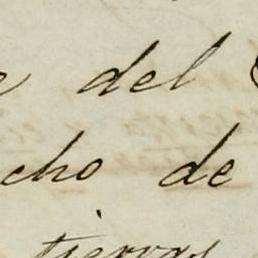 e del
cho de
tierras